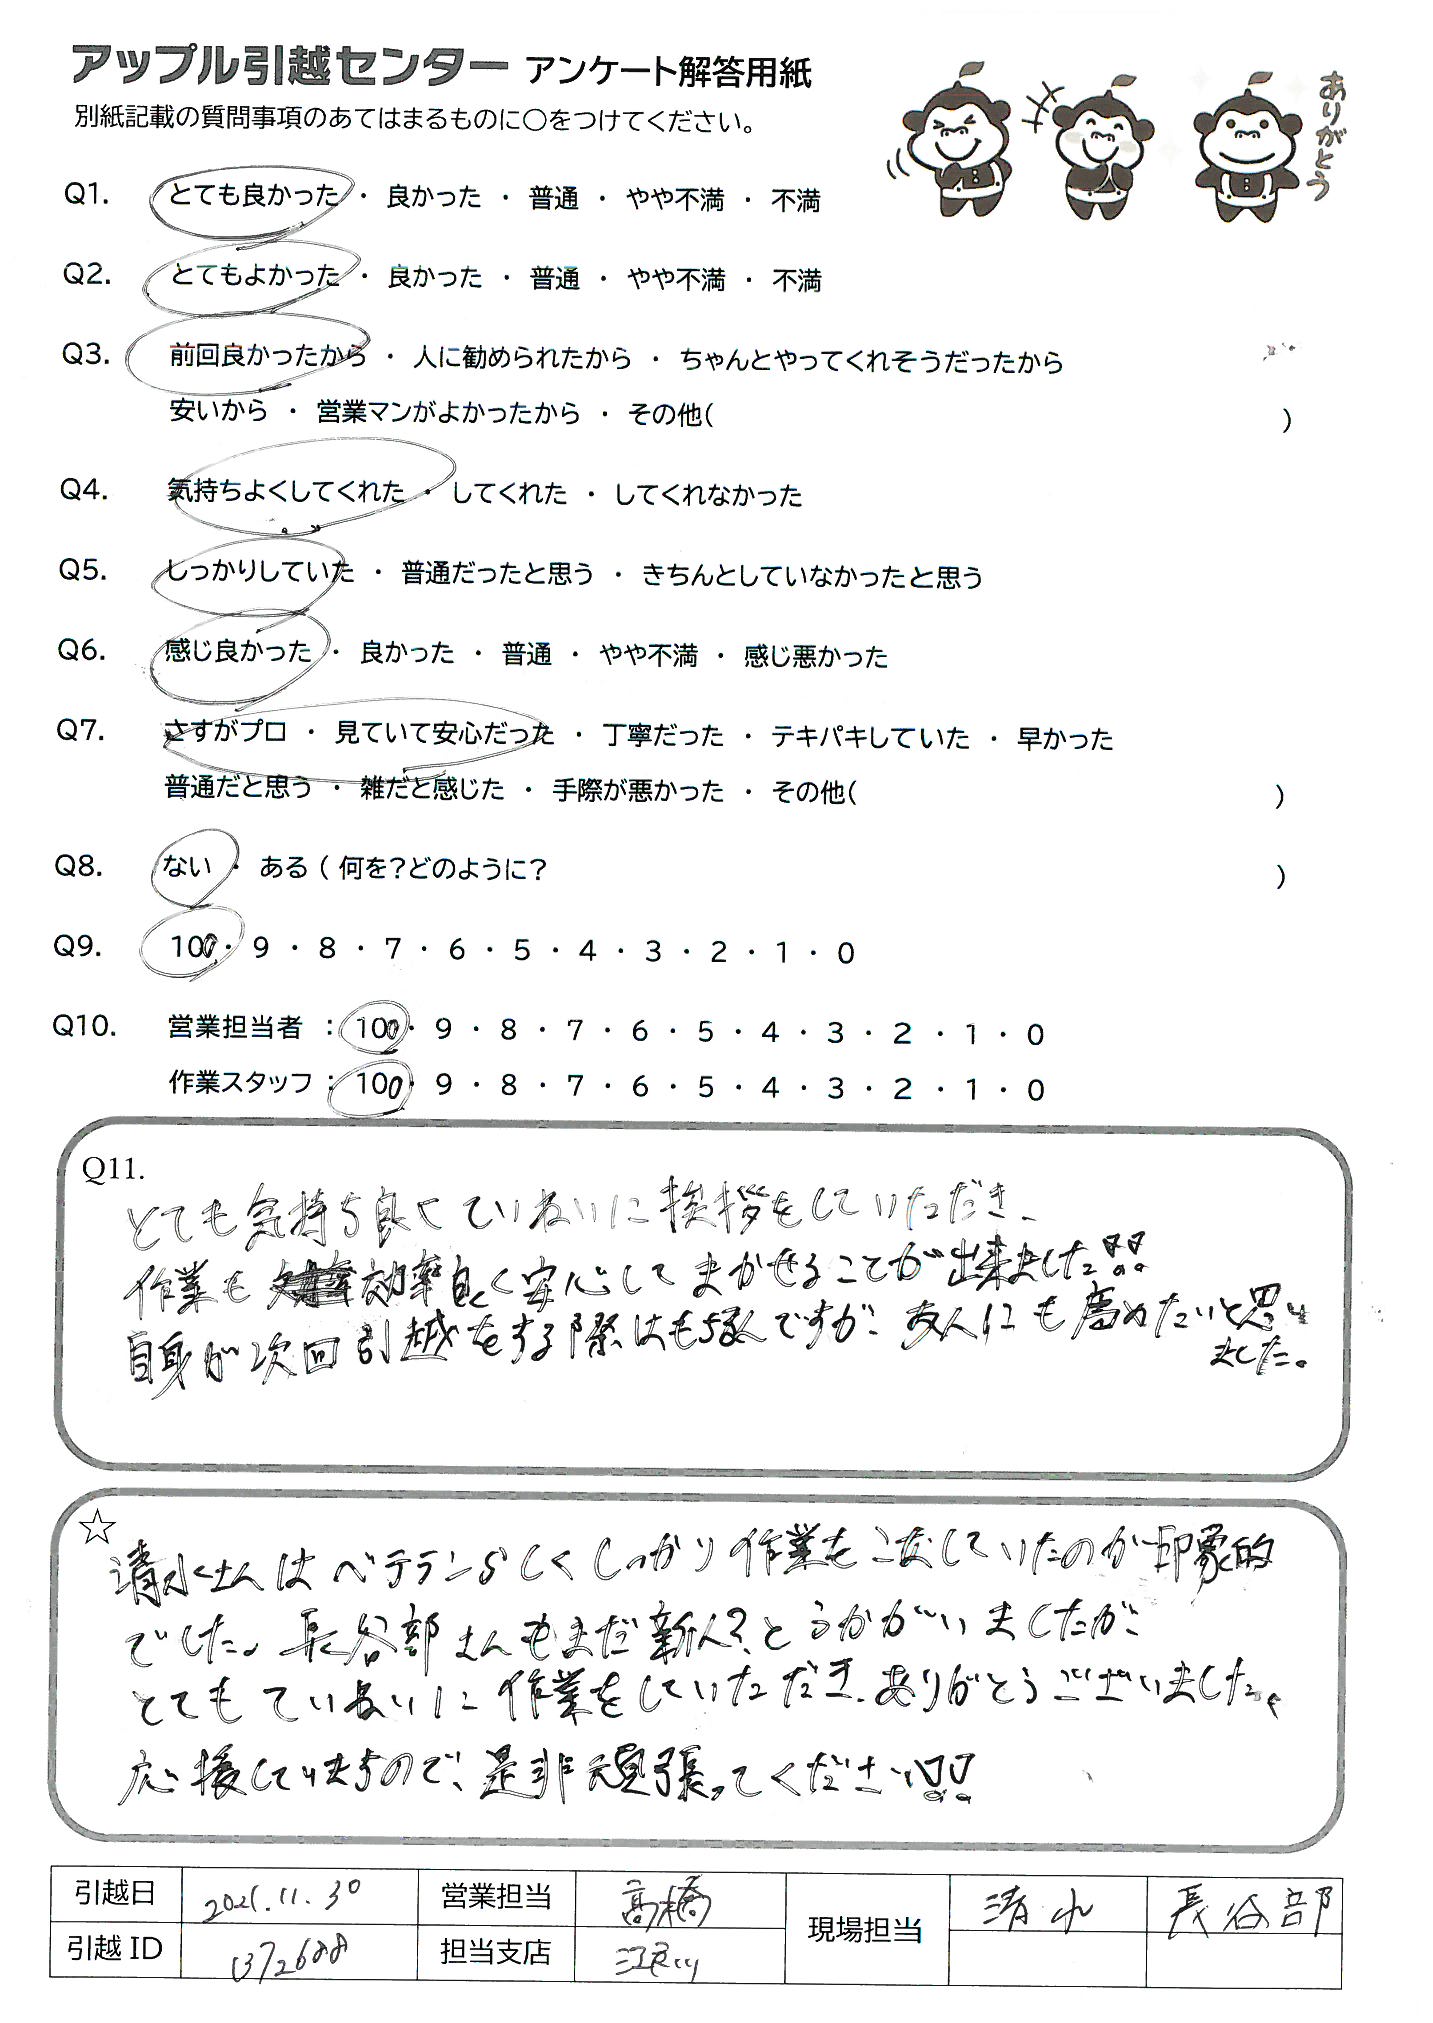 アップル引越センター アンケート解答用紙
別紙記載の質問事項のあてはまるものに○をつけてください。
ありがとう
Q1. とても良かった ・ 良かった ・ 普通 ・ やや不満 ・ 不満
Q2. とてもよかった ・ 良かった ・ 普通 ・ やや不満 ・ 不満
Q3. 前回良かったから ・ 人に勧められたから ・ ちゃんとやってくれそうだったから
安いから ・ 営業マンがよかったから ・ その他( )
Q4. 気持ちよくしてくれた ・ してくれた ・ してくれなかった
Q5. しっかりしていた ・ 普通だったと思う ・ きちんとしていなかったと思う
Q6. 感じ良かった ・ 良かった ・ 普通 ・ やや不満 ・ 感じ悪かった
Q7. さすがプロ ・ 見ていて安心だった ・ 丁寧だった ・ テキパキしていた ・ 早かった
普通だと思う ・ 雑だと感じた ・ 手際が悪かった ・ その他( )
Q8. ない ・ ある ( 何を?どのように? )
Q9. 100 ・ 9 ・ 8 ・ 7 ・ 6 ・ 5 ・ 4 ・ 3 ・ 2 ・ 1 ・ 0
Q10. 営業担当者 : 100 ・ 9 ・ 8 ・ 7 ・ 6 ・ 5 ・ 4 ・ 3 ・ 2 ・ 1 ・ 0
作業スタッフ : 100 ・ 9 ・ 8 ・ 7 ・ 6 ・ 5 ・ 4 ・ 3 ・ 2 ・ 1 ・ 0
Q11.
とても気持ち良くていねいに挨拶をしていただき、
作業も効率良く安心してまかせることが出来ました!!
自身が次回引越をする際はもちろんですが、友人にも薦めたいと思い
ました。
☆
清水さんはベテランらしくしっかり作業をこなしていたのが印象的
でした。長谷部さんもまだ新人?とうかがいましたが、
とてもていねいに作業をしていただき、ありがとうございました。
応援していますので、是非頑張ってください!!
引越日 2021.11.30 営業担当 髙橋 現場担当 清水 長谷部
引越 ID 1372688 担当支店 江戸川